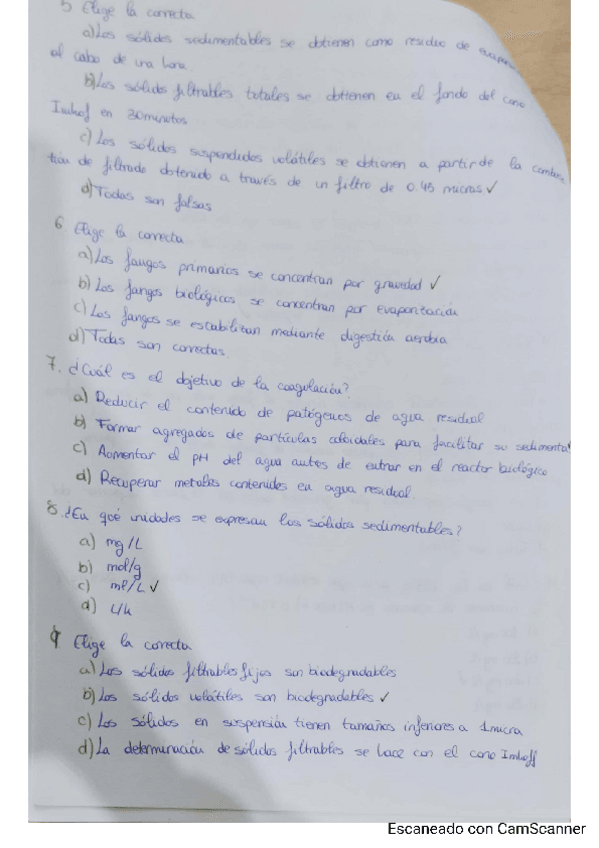 5 Elige la correcta
a) Los sólidos sedimentables se obtienen como residuo de evapora
al cabo de una hora.
b) Los sólidos filtrables totales se obtienen en el fondo del cono
Imhof en 30 minutos
c) Los sólidos suspendidos volátiles se obtienen a partir de la combus
tión de filtrado obtenido a través de un filtro de 0.45 micras ✓
d) Todas son falsas
6 Elige la correcta
a) Los fangos primarios se concentran por gravedad ✓
b) Los fangos biológicos se concentran por evaporización
c) Los fangos se estabilitan mediante digestión aerobia
d) Todas son correctas
7. ¿Cuál es el objetivo de la coagulación?
a) Reducir el contenido de patógenos de agua residual
b) Formar agregados de partículas coloidales para facilitar su sedimenta
c) Aomentar el pH del agua antes de entrar en el reactor biológico
d) Recuperar metales contenidos en agua residual
8. ¿En qué unidades se expresan los sólidos sedimentables?
a) mg/L
b) mol/g
c) ml/L ✓
d) L/h
9 Elige la correcta
a) Los sólidos filtrables fijos son biodegradables
b) Los sólidos volátiles son biodegradables ✓
c) Los sólidos en suspensión tienen tamaños inferiores a 1 micra
d) La determinación de sólidos filtrables se hace con el cono Imhoff
Escaneado con CamScanner